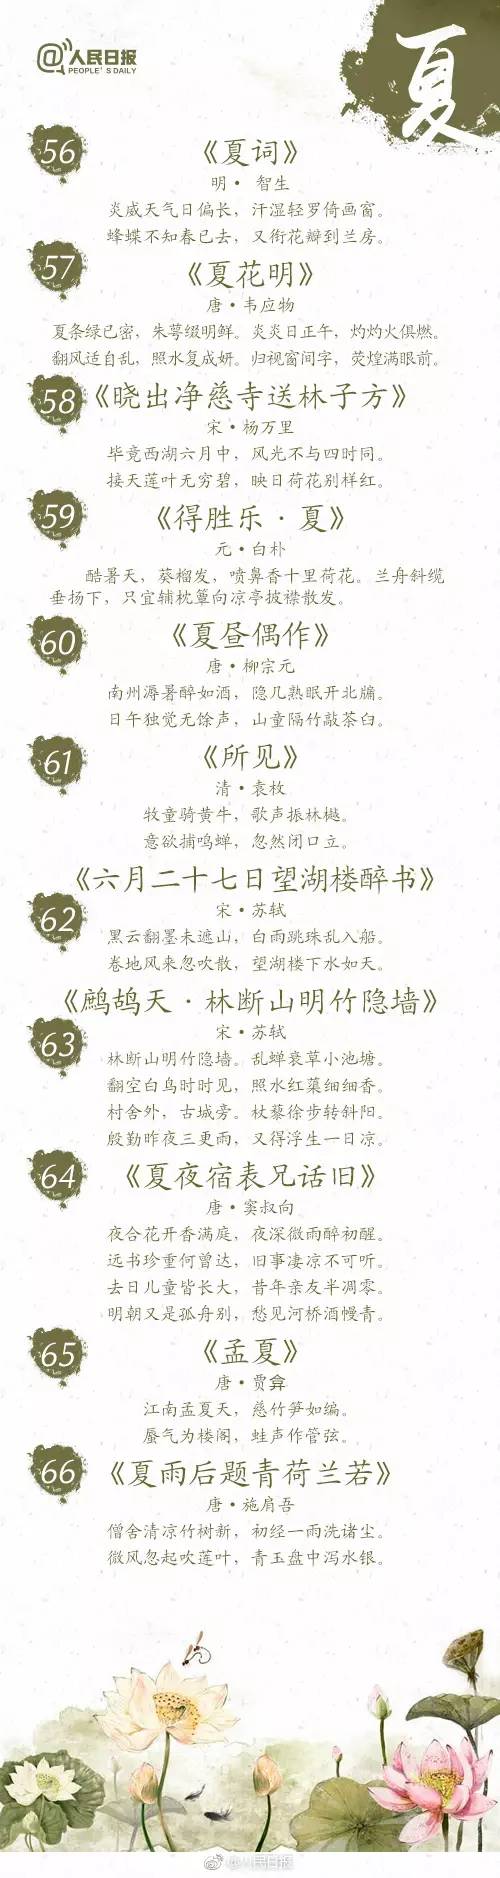 @人民日报
PEOPLE'S DAILY
夏
56
《夏词》
明·智生
炎威天气日偏长，汗湿轻罗倚画窗。
蜂蝶不知春已去，又衔花瓣到兰房。
57
《夏花明》
唐·韦应物
夏条绿已密，朱萼缀明鲜。炎炎日正午，灼灼火俱燃。
翻风适自乱，照水复成妍。归视窗间字，荧煌满眼前。
58
《晓出净慈寺送林子方》
宋·杨万里
毕竟西湖六月中，风光不与四时同。
接天莲叶无穷碧，映日荷花别样红。
59
《得胜乐·夏》
元·白朴
酷暑天，葵榴发，喷鼻香十里荷花。兰舟斜缆
垂扬下，只宜辅枕簟向凉亭披襟散发。
60
《夏昼偶作》
唐·柳宗元
南州溽暑醉如酒，隐几熟眠开北牖。
日午独觉无馀声，山童隔竹敲茶臼。
61
《所见》
清·袁枚
牧童骑黄牛，歌声振林樾。
意欲捕鸣蝉，忽然闭口立。
《六月二十七日望湖楼醉书》
62
宋·苏轼
黑云翻墨未遮山，白雨跳珠乱入船。
卷地风来忽吹散，望湖楼下水如天。
《鹧鸪天·林断山明竹隐墙》
63
宋·苏轼
林断山明竹隐墙。乱蝉衰草小池塘。
翻空白鸟时时见，照水红蕖细细香。
村舍外，古城旁。杖藜徐步转斜阳。
殷勤昨夜三更雨，又得浮生一日凉。
64
《夏夜宿表兄话旧》
唐·窦叔向
夜合花开香满庭，夜深微雨醉初醒。
远书珍重何曾达，旧事凄凉不可听。
去日儿童皆长大，昔年亲友半凋零。
明朝又是孤舟别，愁见河桥酒幔青。
65
《孟夏》
唐·贾弇
江南孟夏天，慈竹笋如编。
蜃气为楼阁，蛙声作管弦。
66
《夏雨后题青荷兰若》
唐·施肩吾
僧舍清凉竹树新，初经一雨洗诸尘。
微风忽起吹莲叶，青玉盘中泻水银。
@人民日报